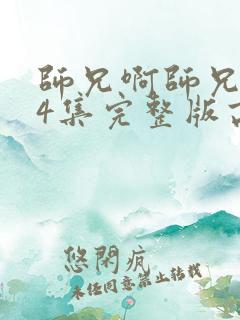 師兄啊師兄
4集完整版
悠閑
未经同意禁止转载